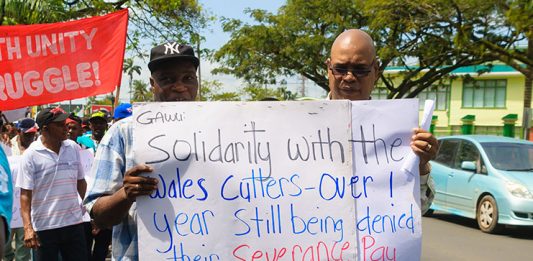 TH UNITY
RUGGLE!
NY
GAWU:
Solidarity with the
Wales Cutters-Over 1
year still being denied
their Severance Pay